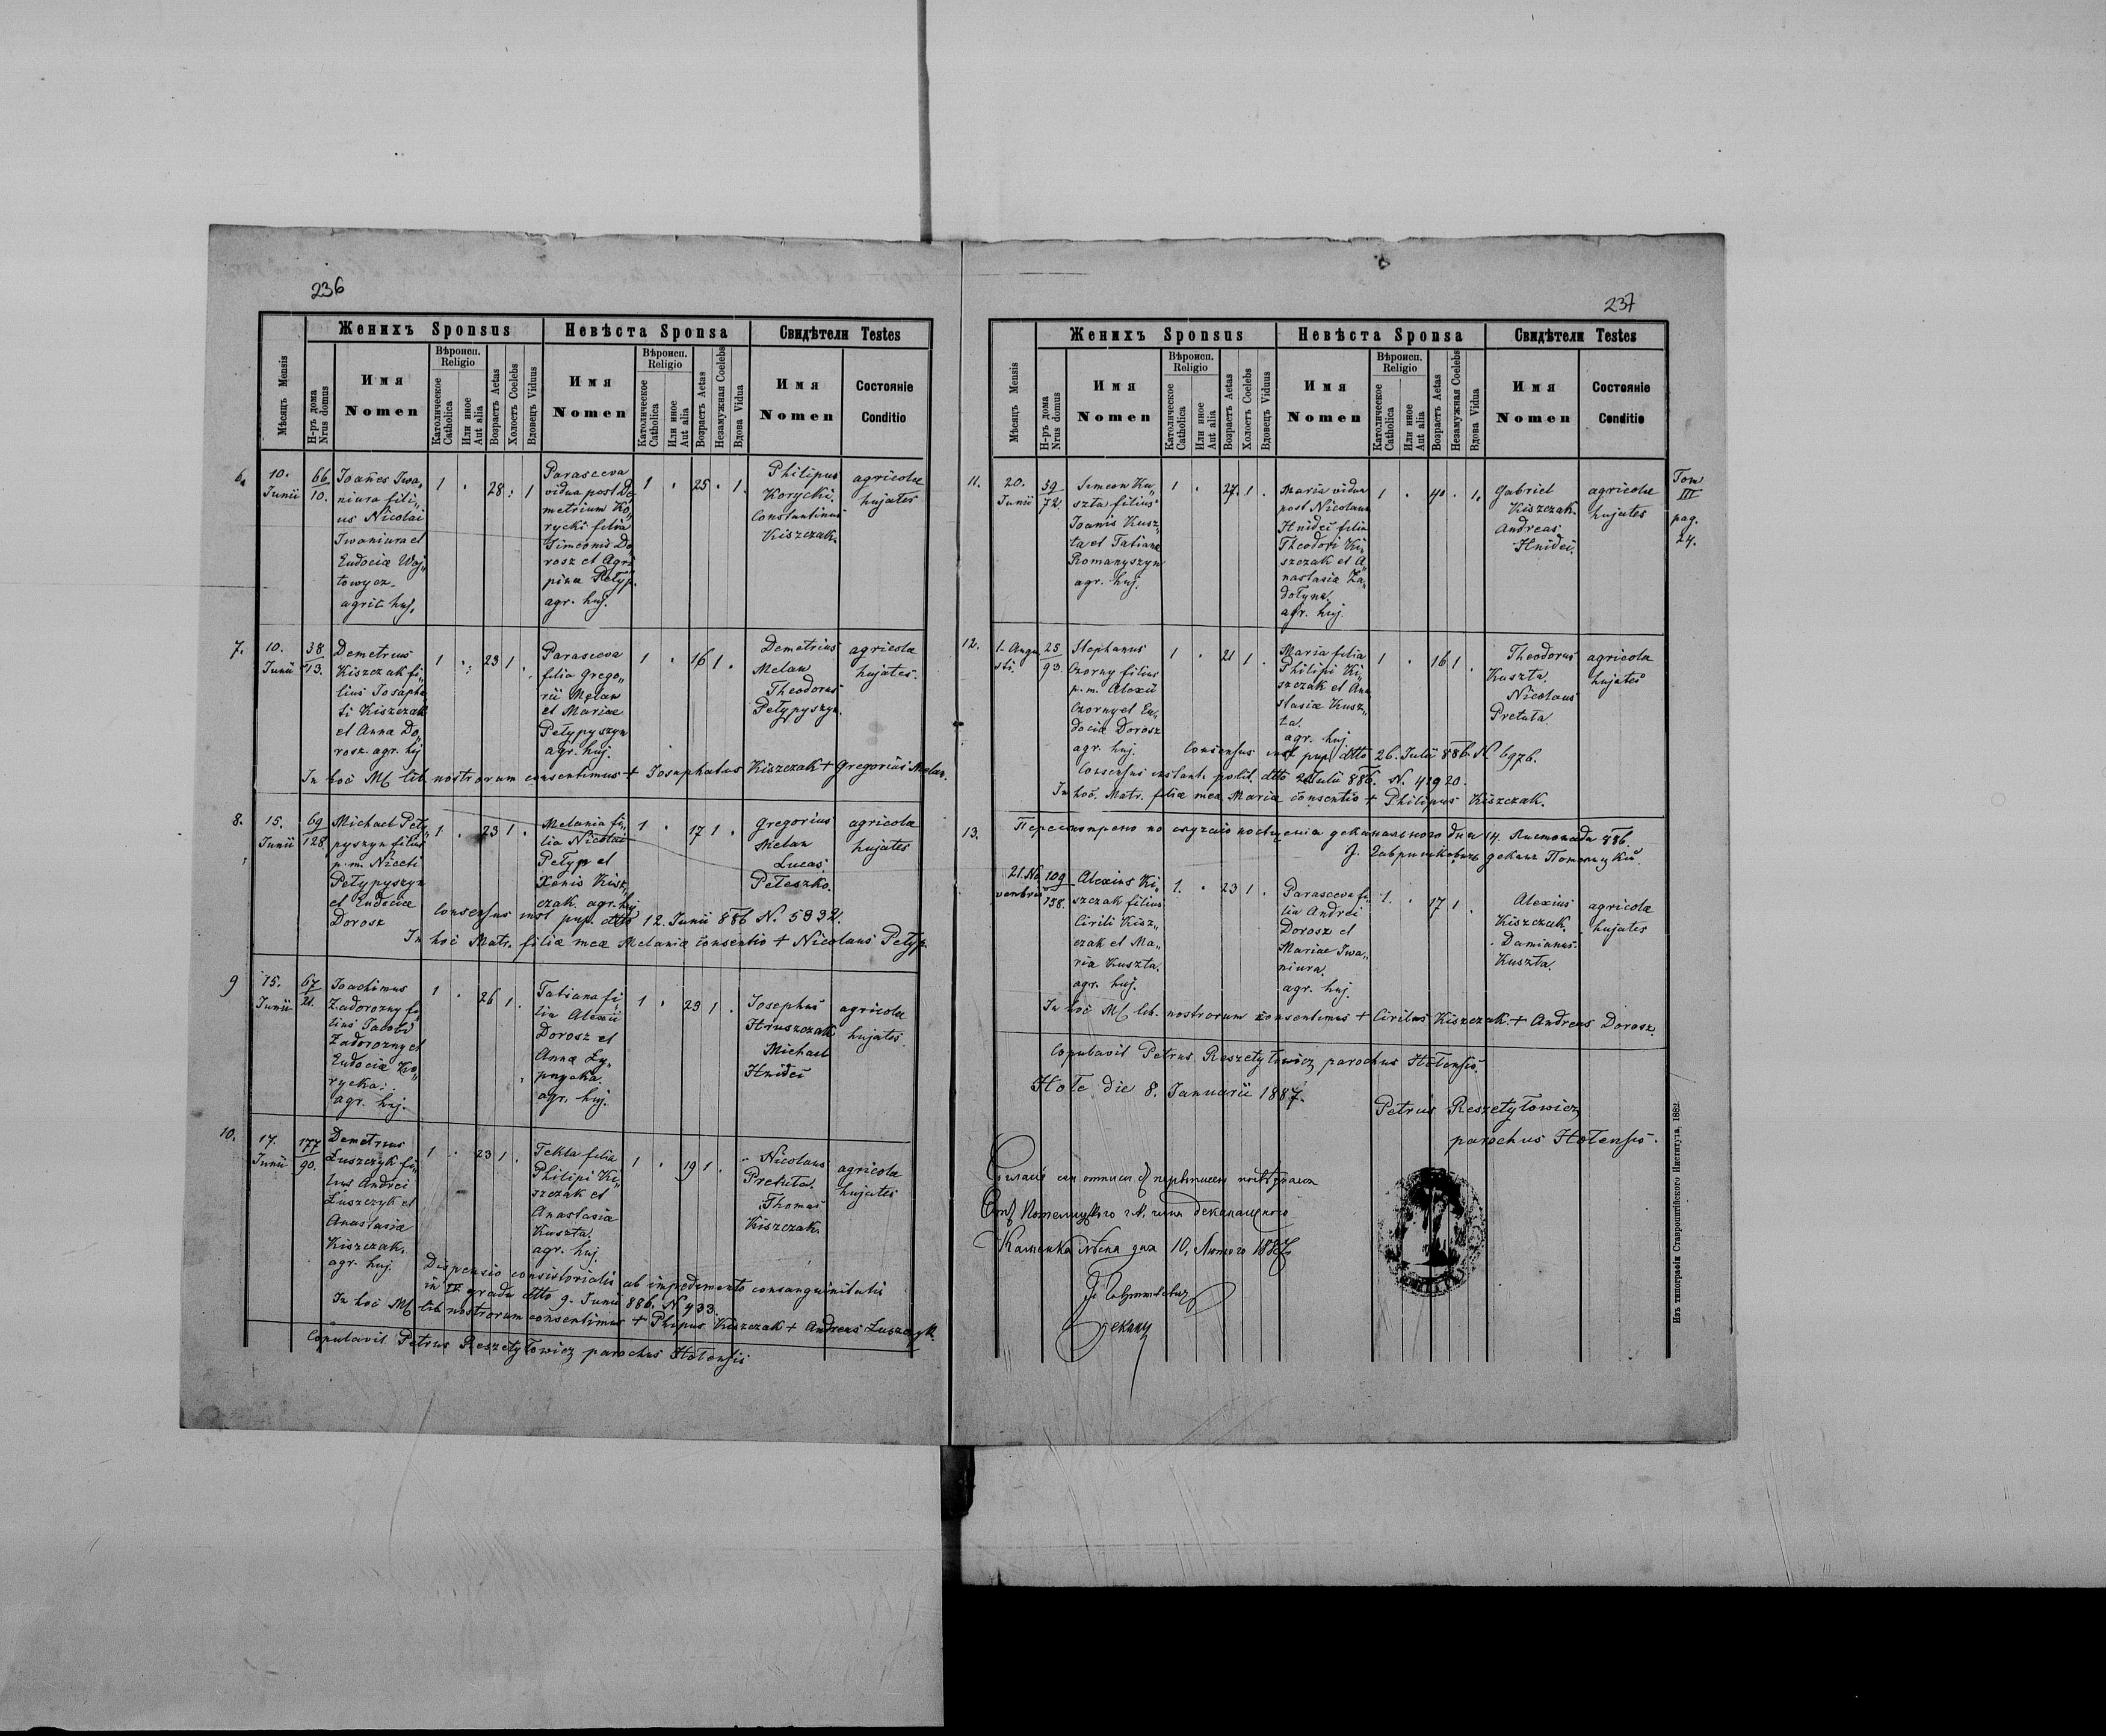 236
Женихъ Sponsus
Невѣста Sponsa
Свидѣтели Testes
Мѣсяцъ Mensis
Н-ръ дома
Nrus domus
Имя
Nomen
Вѣроисп.
Religio
Католическое
Catholica
Или иное
Aut alia
Возрастъ Aetas
Холостъ Coelebs
Вдовецъ Viduus
Имя
Nomen
Вѣроисп.
Religio
Католическое
Catholica
Или иное
Aut alia
Возрастъ Aetas
Незамужная Coelebs
Вдова Vidua
Имя
Nomen
Состояніе
Conditio
6.
10.
Junii
66
10.
Joannes Iwa„
niura fili„
us Nicolai
Iwaniura et
Eudociæ Woj„
towycz.
agric. huj.
1 . 28 . 1
Parasceva
vidua post De„
metrium Ko„
rycki filia
Simeonis Do„
rosz et Agri„
pina Petyp.
agr. huj.
1 . 25 . 1.
Philipus
Korycki.
Constantinus
Kiszczak.
agricolæ
hujates
7.
10.
Junii
38
13.
Demetrius
Kiszczak fi„
lius Josapha„
ti Kiszczak
et Anna Do„
rosz. agr. huj
1 . 23 1 .
Parasceva
filia Grego„
rii Melan
et Mariae
Petypyszyn
agr. huj.
1 . 16 1 .
Demetrius
Melan
Theodorus
Petypyszyn.
agricolæ
hujates.
In hoc M. lib. nostrorum consentimus + Josaphatus Kiszczak + Gregorius Melan.
8.
15.
Junii
69
128
Michael Pety„
pyszyn filius
p. m. Niceti
Petypyszyn
et Eudociæ
Dorosz
1 . 23 1 .
Melania fi„
lia Nicolai
Petyp et
Xenis Kisz„
czak. agr. huj.
1 . 17 1 .
Gregorius
Melan
Lucas
Peteszko.
agricolæ
hujates
Consensus inst pup. dtto 12. Junii 886 N. 5932.
In hoc Matr. filiæ meæ Melaniæ consentio + Nicolaus Petyp.
9
15.
Junii
67
21.
Joachimus
Zadorozny fi„
lius Jacobi
Zadorozny et
Eudociæ Ko„
rycka.
agr. huj.
1 . 26 1 .
Tatiana fi„
lia Alexii
Dorosz et
Anna Ly„
pnycka.
agr. huj.
1 . 23 1 .
Josephus
Hruszczak
Michael
Hnidei
agricolæ
hujates.
10.
17.
Junii
177
90.
Demetrius
Łuszczyk fi„
lius Andrei
Łuszczyk et
Anastasiæ
Kiszczak.
agr. huj.
1 . 23 1 .
Tekla filia
Philipi Ki„
szczak et
Anastasia
Kuszta.
agr. huj.
1 . 19 1 .
Nicolaus
Pretuta.
Thomas
Kiszczak.
agricolæ
hujates
Dispensio consistorialis ab impedimento consanguinitatis
in IV gradu dtto 9. Junii 886. N 433.
In hoc M. lib nostrorum consentimus + Phipus Kiszczak + Andreas Łuszczyk.
Copulavit Petrus Reszetyłowicz parochus Hotensis
237
Женихъ Sponsus
Невѣста Sponsa
Свидѣтели Testes
Мѣсяцъ Mensis
Н-ръ дома
Nrus domus
Имя
Nomen
Вѣроисп.
Religio
Католическое
Catholica
Или иное
Aut alia
Возрастъ Aetas
Холостъ Coelebs
Вдовецъ Viduus
Имя
Nomen
Вѣроисп.
Religio
Католическое
Catholica
Или иное
Aut alia
Возрастъ Aetas
Незамужная Coelebs
Вдова Vidua
Имя
Nomen
Состояніе
Conditio
11.
20.
Junii
39
72.
Simeon Ku„
szta filius
Joanis Kusz„
ta et Tatiana
Romanyszyn
agr. huj.
1 . 27. 1 .
Maria vidua
post Nicolaum
Hnidei filia
Theodori Ki„
szczak et A„
nastasia Za„
dotyna.
agr. huj.
1 . 40 . 1.
Gabriel
Kiszczak.
Andreas
Hnidei.
agricolæ
hujates
Tom
III
pag.
24.
12.
1. Augu
sti.
25
93.
Stephanus
Czorny filius
p. m. Alexii
Czorny et Eu„
dociæ Dorosz
agr. huj.
1 . 21 1 .
Maria filia
Philipi Ki„
szczak et Ana
stasiæ Kusz„
ta.
agr. huj.
1 . 16 1 .
Theodorus
Kuszta.
Nicolaus
Pretuta.
agricolæ
hujates
Consensus inst pup dtto 26. Julii 886. N. 6976.
Consensus instant. polit. dtto Julii 886. N. 42920.
In hoc. Matr. filiæ meæ Mariæ consentio + Philipus Kiszczak.
13.
дня 14. Листопада 886.
деканъ
21. No
vembris
109
138.
Alexius Ki„
szczak filius
Cirili Kisz„
czak et Ma„
ria Kuszta.
agr. huj.
1. . 23 1 .
Parasceva fi„
lia Andrei
Dorosz et
Mariae Iwa„
niura.
agr. huj.
1. . 17 1 .
Alexius
Kiszczak.
Damianus
Kuszta.
agricolæ
hujates
In hoc M. lib. nostrorum consentimus + Cirilus Kiszczak. + Andreas Dorosz.
Copulavit Petrus Reszetyłowicz parochus Hotensis.
Hote die 8. Januarii 1887.
Petrus Reszetyłowicz
parochus Hotensis.
дня 10. Лютого 1887
Изъ типографіи Ставропигійского Института, 1882.